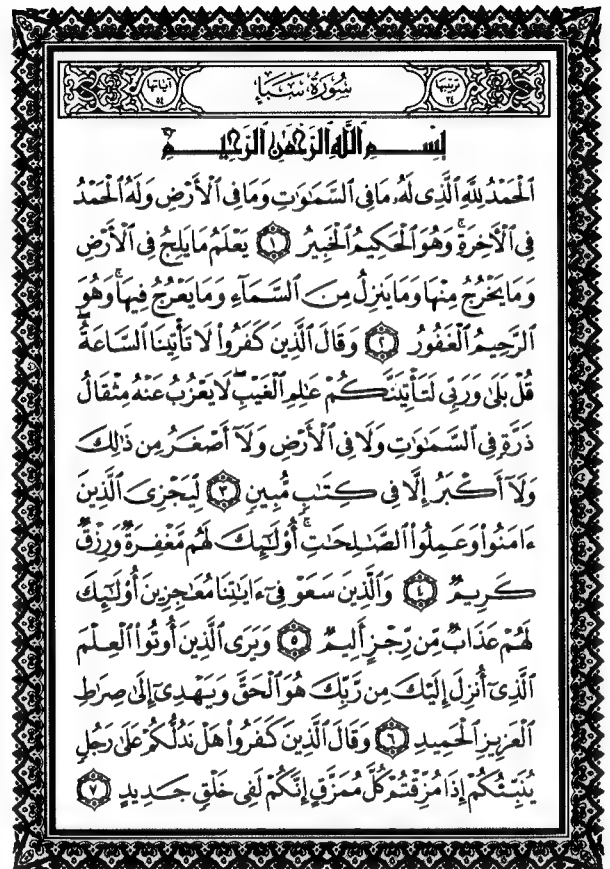 ترتيبها ٣٤ سُورَةُ سَبَإٍ آياتها ٥٤
بِسْمِ ٱللَّهِ ٱلرَّحْمَٰنِ ٱلرَّحِيمِ
ٱلْحَمْدُ لِلَّهِ ٱلَّذِى لَهُۥ مَا فِى ٱلسَّمَٰوَٰتِ وَمَا فِى ٱلْأَرْضِ وَلَهُ ٱلْحَمْدُ
فِى ٱلْأَخِرَةِ ۚ وَهُوَ ٱلْحَكِيمُ ٱلْخَبِيرُ ۝١ يَعْلَمُ مَا يَلِجُ فِى ٱلْأَرْضِ
وَمَا يَخْرُجُ مِنْهَا وَمَا يَنزِلُ مِنَ ٱلسَّمَآءِ وَمَا يَعْرُجُ فِيهَا ۚ وَهُوَ
ٱلرَّحِيمُ ٱلْغَفُورُ ۝٢ وَقَالَ ٱلَّذِينَ كَفَرُوا۟ لَا تَأْتِينَا ٱلسَّاعَةُ ۖ
قُلْ بَلَىٰ وَرَبِّى لَتَأْتِيَنَّكُمْ عَٰلِمِ ٱلْغَيْبِ ۖ لَا يَعْزُبُ عَنْهُ مِثْقَالُ
ذَرَّةٍ فِى ٱلسَّمَٰوَٰتِ وَلَا فِى ٱلْأَرْضِ وَلَآ أَصْغَرُ مِن ذَٰلِكَ
وَلَآ أَكْبَرُ إِلَّا فِى كِتَٰبٍ مُّبِينٍ ۝٣ لِّيَجْزِىَ ٱلَّذِينَ
ءَامَنُوا۟ وَعَمِلُوا۟ ٱلصَّٰلِحَٰتِ ۚ أُو۟لَٰٓئِكَ لَهُم مَّغْفِرَةٌ وَرِزْقٌ
كَرِيمٌ ۝٤ وَٱلَّذِينَ سَعَوْ فِىٓ ءَايَٰتِنَا مُعَٰجِزِينَ أُو۟لَٰٓئِكَ
لَهُمْ عَذَابٌ مِّن رِّجْزٍ أَلِيمٌ ۝٥ وَيَرَى ٱلَّذِينَ أُوتُوا۟ ٱلْعِلْمَ
ٱلَّذِىٓ أُنزِلَ إِلَيْكَ مِن رَّبِّكَ هُوَ ٱلْحَقَّ وَيَهْدِىٓ إِلَىٰ صِرَٰطِ
ٱلْعَزِيزِ ٱلْحَمِيدِ ۝٦ وَقَالَ ٱلَّذِينَ كَفَرُوا۟ هَلْ نَدُلُّكُمْ عَلَىٰ رَجُلٍ
يُنَبِّئُكُمْ إِذَا مُزِّقْتُمْ كُلَّ مُمَزَّقٍ إِنَّكُمْ لَفِى خَلْقٍ جَدِيدٍ ۝٧